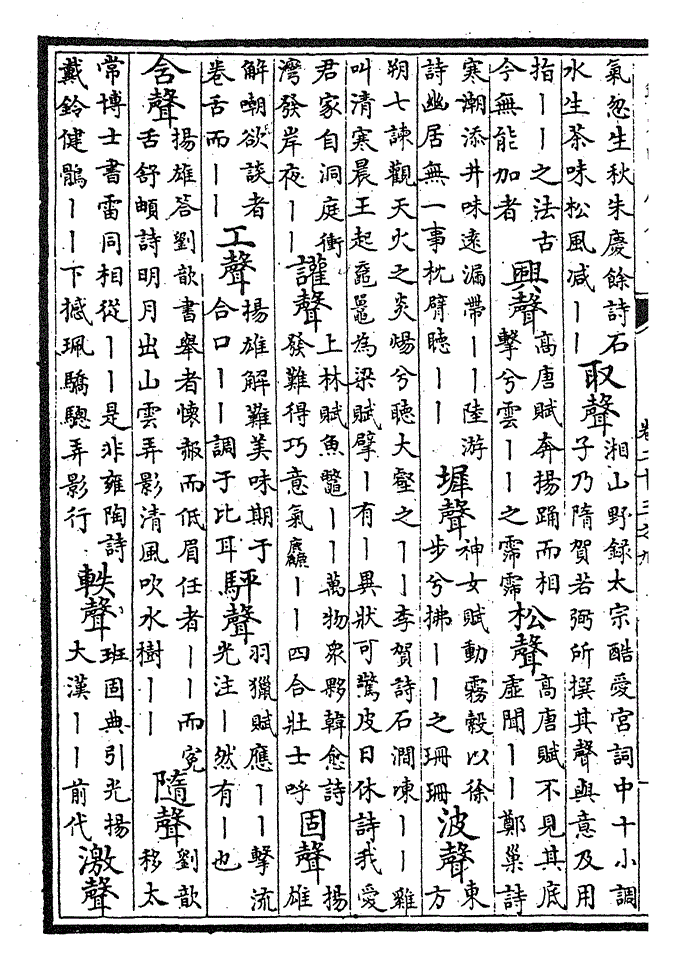 氣忽生秋朱慶餘詩石
水生茶味松風减丨丨
取聲
湘山野録太宗酷愛宮詞中十小調
子乃隋賀若弼所撰其聲與意及用
指丨丨之法古
今無能加者
興聲
高唐賦奔揚踊而相
擊兮雲丨丨之霈霈
松聲
高唐賦不見其底
虛聞丨丨鄭巢詩
寒潮添井味遠漏帶丨丨陸游
詩幽居無一事枕臂聽丨丨
墀聲
神女賦動霧縠以徐
步兮拂丨丨之珊珊
波聲
東
方
朔七諫觀天火之炎煬兮聽大壑之丨丨李賀詩石澗凍丨丨雞
叫清寒晨王起黿鼉為梁賦擘丨有丨異狀可驚皮日休詩我愛
君家自洞庭衝
灣發岸夜丨丨
讙聲
上林賦魚鼈丨丨萬物衆夥韓愈詩
發難得巧意氣麤丨丨四合壯士呼
固聲
揚
雄
解嘲欲談者
卷舌而丨丨
工聲
揚雄解難美味期于
合口丨丨調于比耳
駍聲
羽獵賦應丨丨擊流
光注丨然有丨也
含聲
揚雄答劉歆書舉者懷赧而低眉任者丨丨而寃
舌舒頔詩明月出山雲弄影清風吹水樹丨丨
隨聲
劉歆
移太
常博士書雷同相從丨丨是非雍陶詩
戴鈴健鶻丨丨下撼珮驕驄弄影行
軼聲
班固典引光揚
大漢丨丨前代
激聲